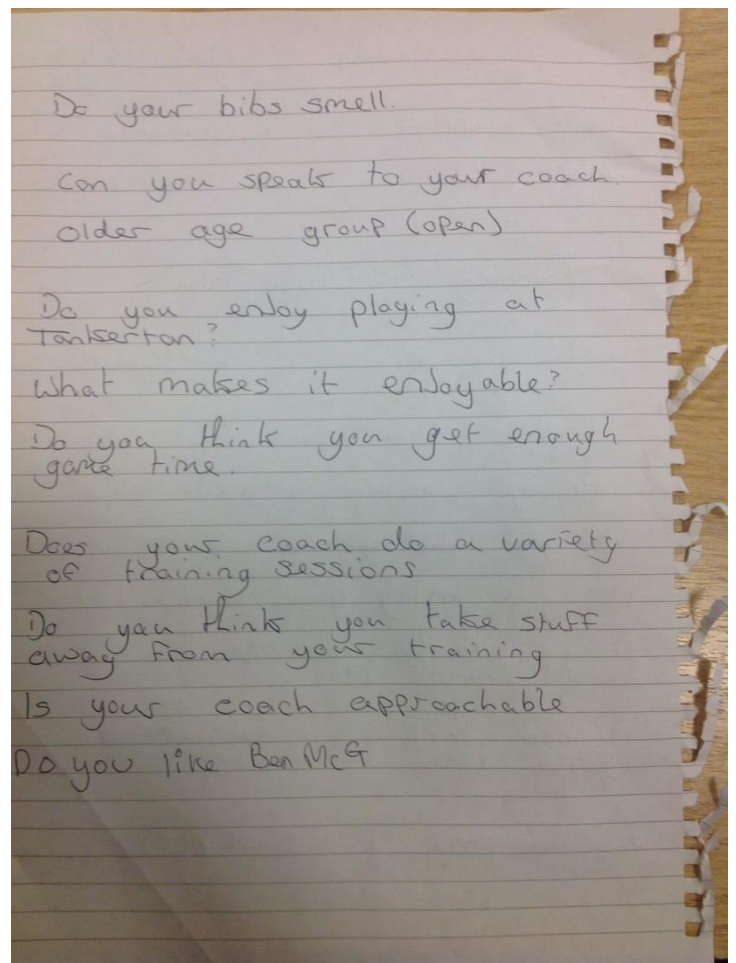 Do your bibs smell.
Can you speak to your coach
older age group (open)
Do you enjoy playing at
Tankerton?
What makes it enjoyable?
Do you think you get enough
game time.
Does your coach do a variety
of training sessions
Do you think you take stuff
away from your training
Is your coach approachable
Do you like Ben McG